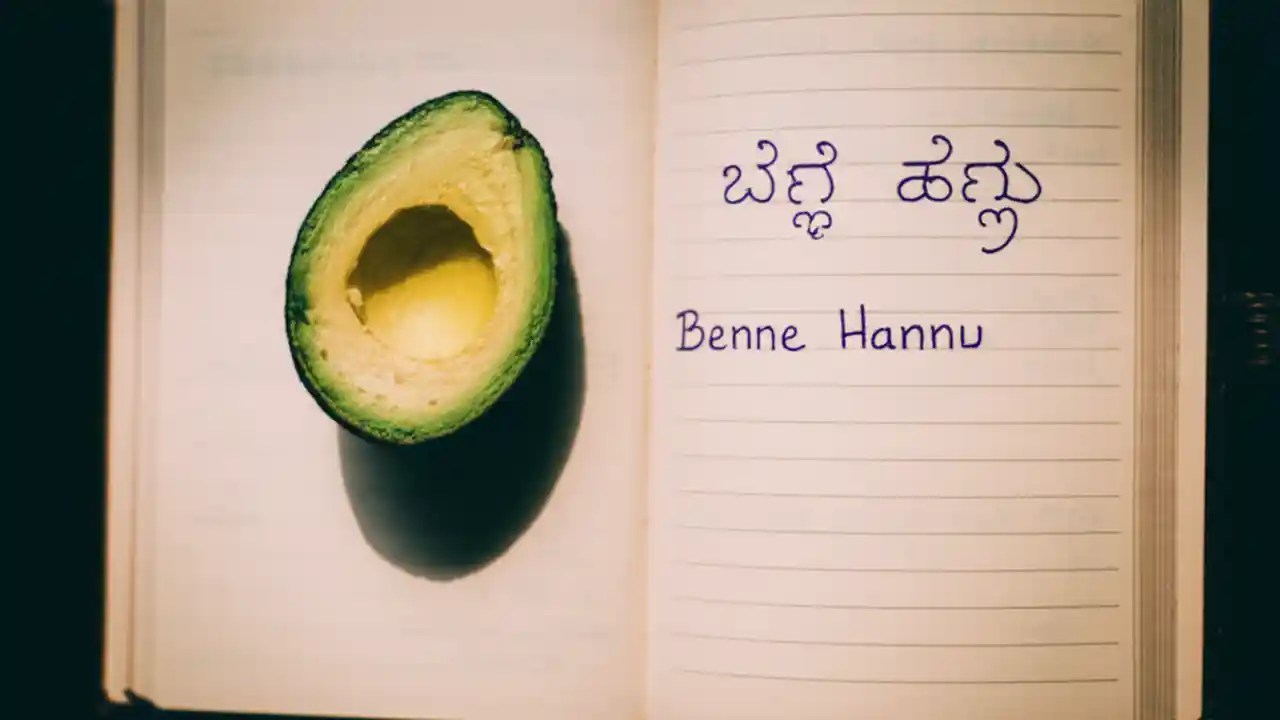 ಬೆಣ್ಣೆ ಹೆಣ್ಣು
Benne Hannu